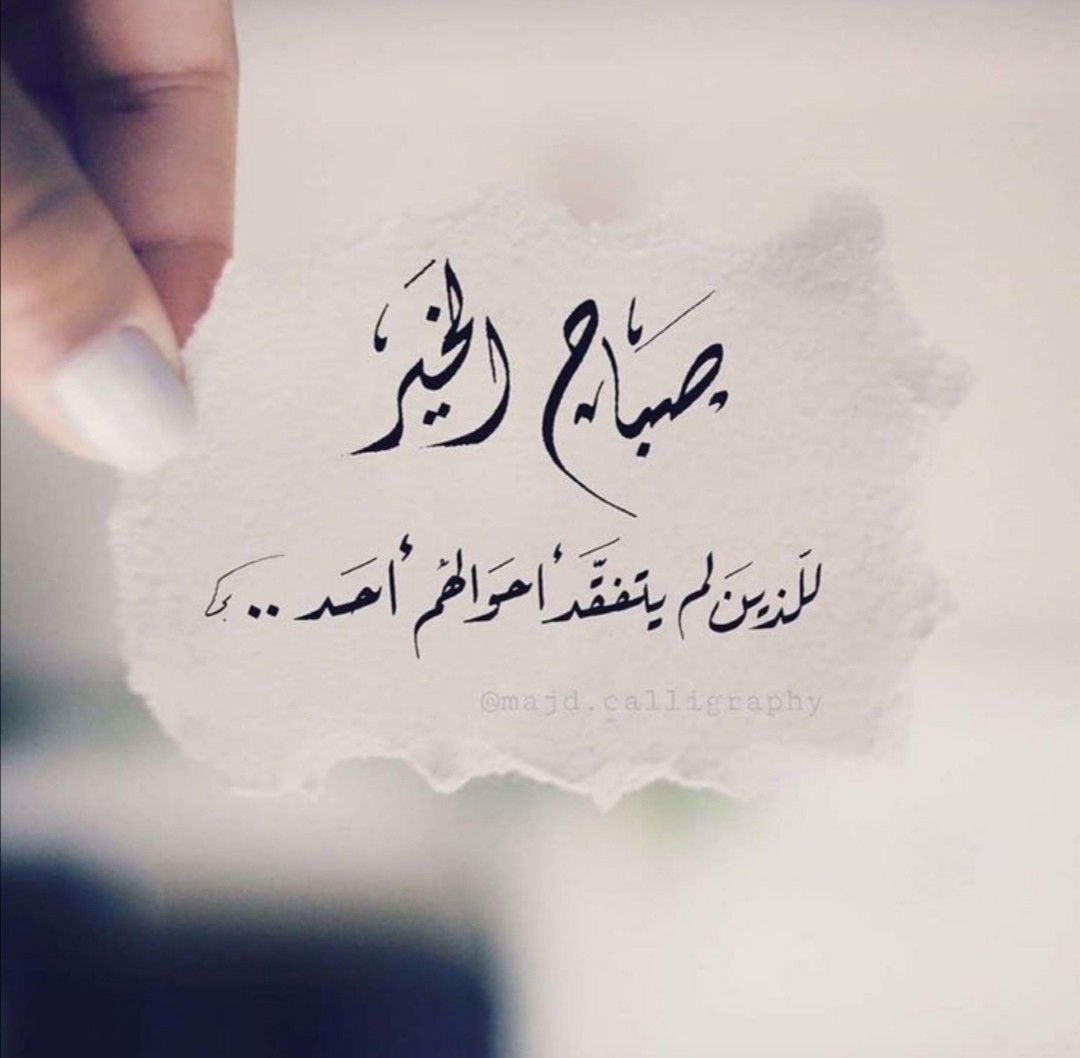 صَبَاح الخَير
للَّذينَ لم يتفقَّد أحوَالهُم أحَد ..
@majd.calligraphy